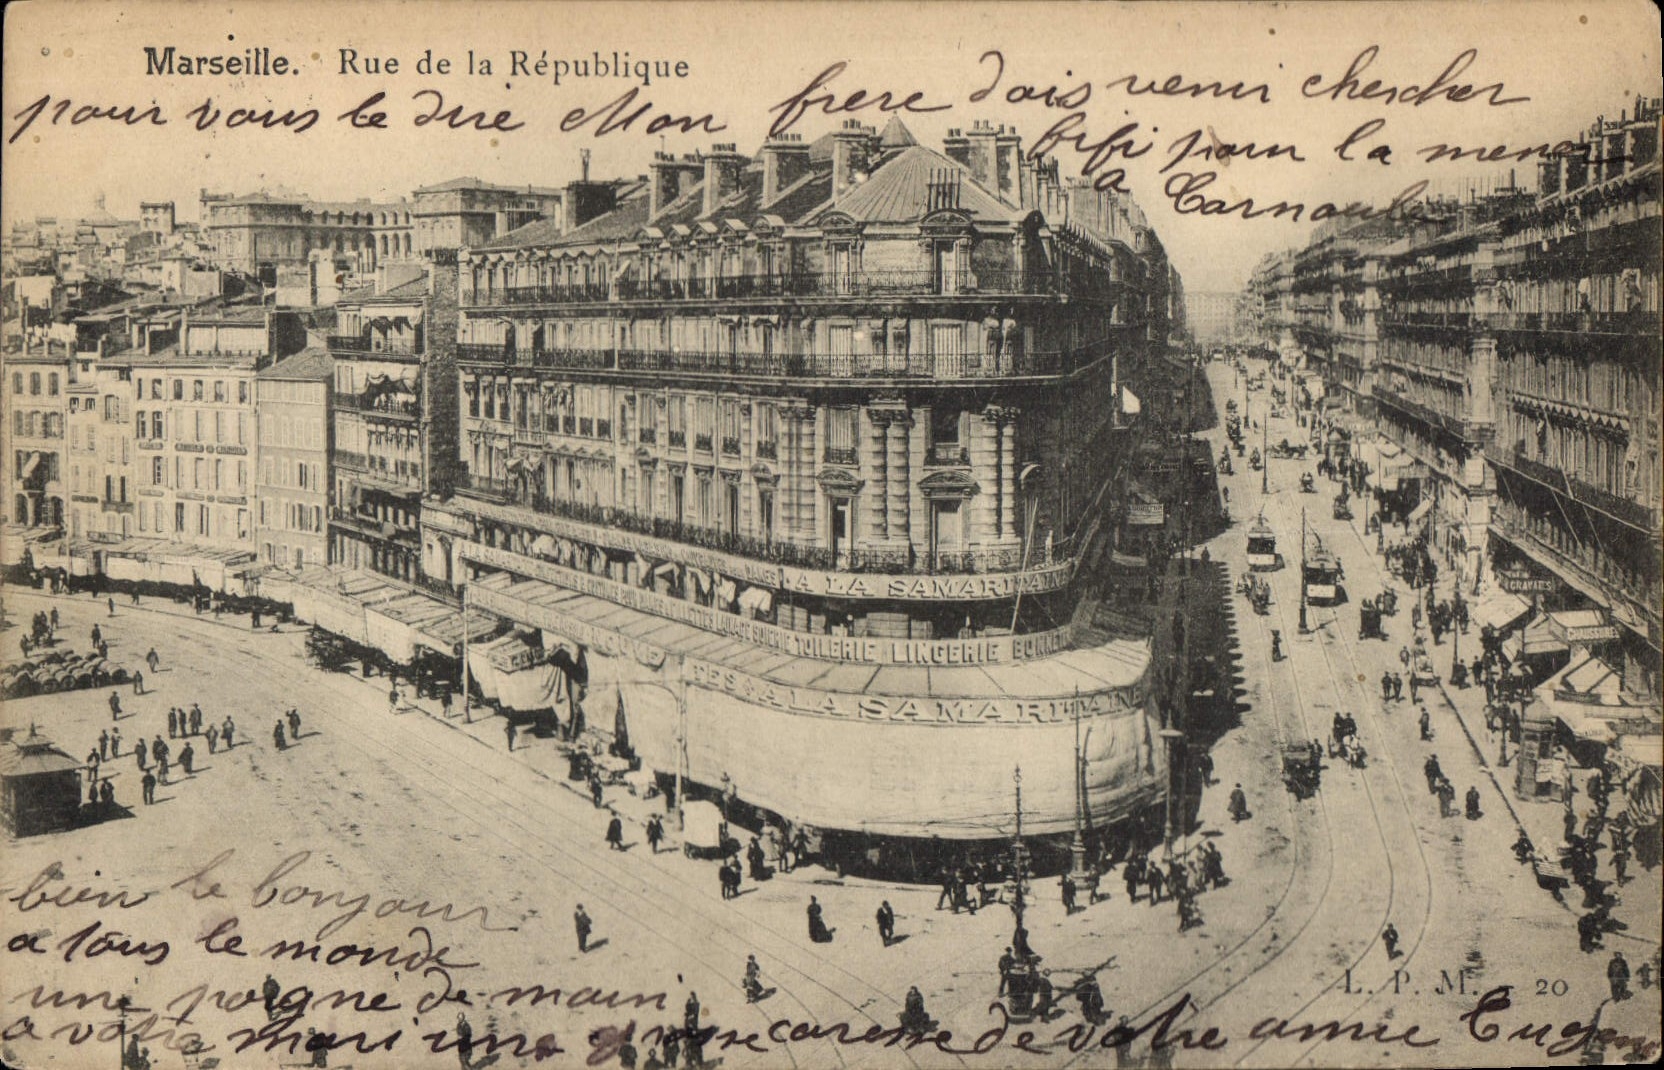 Marseille. Rue de la République
pour vous le dire Mon frere dois venir chercher
fifi pour la mener
a Carnoule
A LA SAMARITAINE
TOILERIE LINGERIE BONNET
A LA SAMARITAINE
CRAVATES
bien le bonjour
a tous le monde
une poigne de main
a votre mari une grosse caresse de votre amie Eugenie
L. P. M. - 20